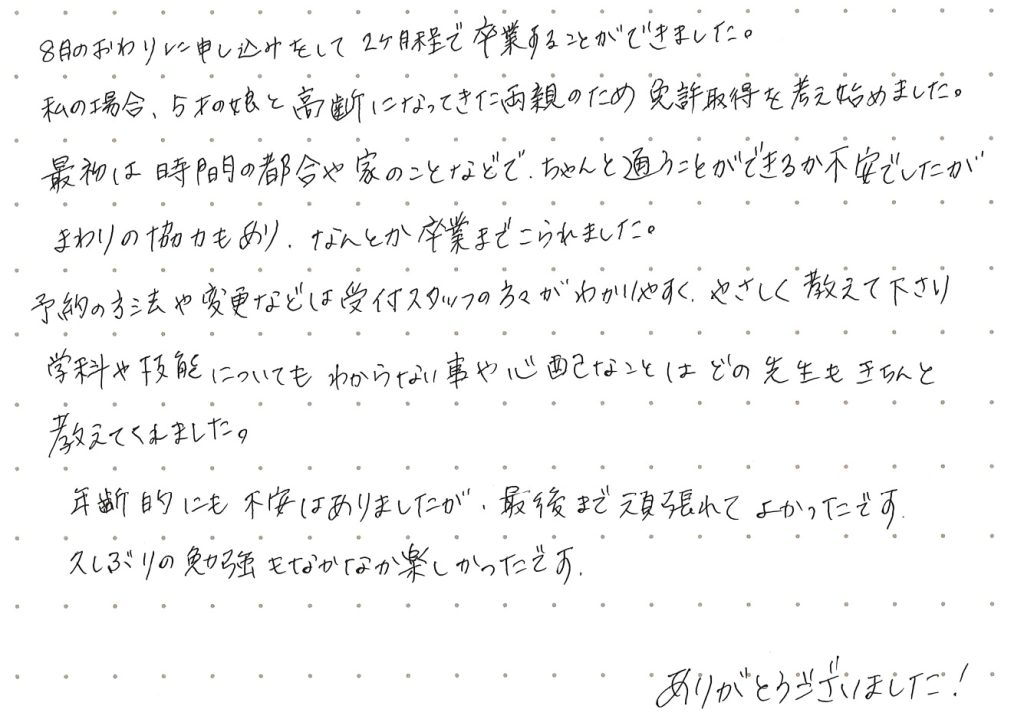 8月のおわりに申し込みをして2ヶ月程で卒業することができました。
私の場合、5才の娘と高齢になってきた両親のため免許取得を考え始めました。
最初は時間の都合や家のことなどで、ちゃんと通うことができるか不安でしたが
まわりの協力もあり、なんとか卒業までこられました。
予約の方法や変更などは受付スタッフの方々がわかりやすく、やさしく教えて下さり
学科や技能についてもわからない事や心配なことはどの先生もきちんと
教えてくれました。
年齢的にも不安はありましたが、最後まで頑張れてよかったです.
久しぶりの勉強もなかなか楽しかったです.
ありがとうございました!